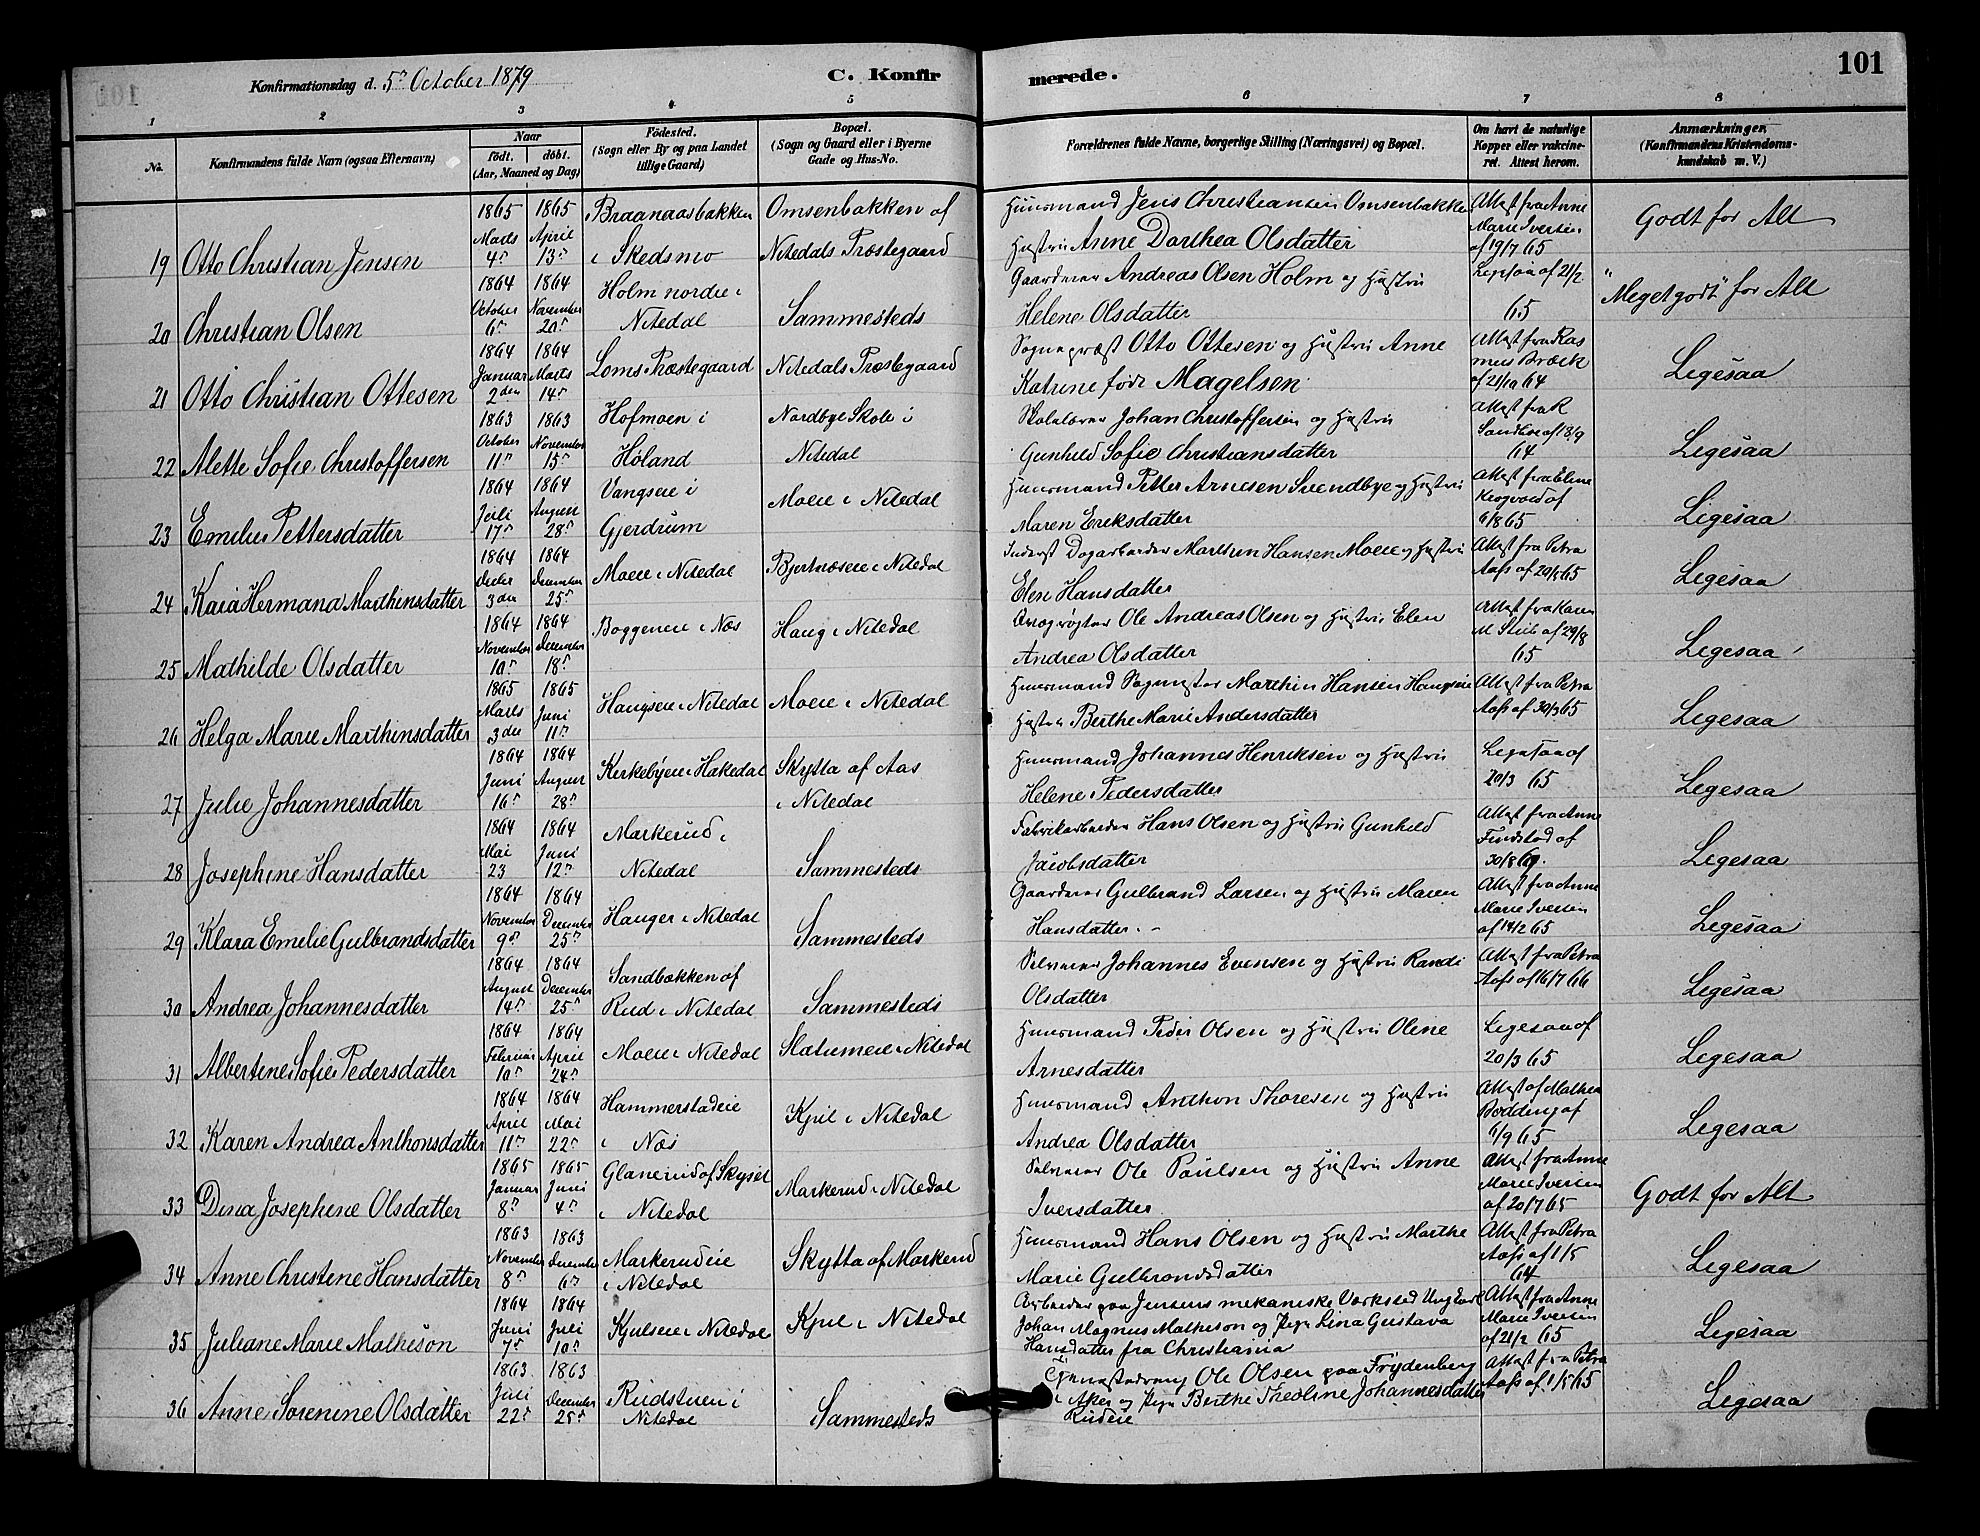 101
Konfirmationsdag d. 5' October 1879
C. Konfirmerede.
1 2 3 4 5 6 7 8
No.
Konfirmandens fulde Navn (ogsaa Efternavn)
Naar
født. døbt.
(Aar, Maaned og Dag)
Fødested.
(Sogn eller By og paa Landet
tillige Gaard)
Bopæl.
(Sogn og Gaard eller i Byerne
Gade og Hus-No.
Forældrenes fulde Navne, borgerlige Stilling (Næringsvei) og Bopæl.
Om havt de naturlige
Kopper eller vakcineret. Attest herom.
Anmærkninger.
(Konfirmandens Kristendomskundskab m. V.)
19 Otto Christian Jensen
1865 Marts 4' 1865 April 13'
Braanaasbakken i Skedsmo
Omsenbakken af Nitedals Præstegaard
Huusmand Jens Christiansen Omsenbakken
Hustru Anne Dorthea Olsdatter
Attest fra Anne Marie Iversen af 19/7 65
Godt for Alt
20 Christian Olsen
1864 October 6' 1864 November 20'
Holm nordre i Nitedal
Sammesteds
Gaardbrer Andreas Olsen Holm og Hustru
Helene Olsdatter
Legesaa af 21/2 65
"Meget godt" for Alt
21 Otto Christian Ottesen
1864 Januar 2den 1864 Marts 14'
Loms Præstegaard
Nitedals Præstegaard
Sognepræst Otto Ottesen og Hustru Anne
Katrine født Magelsen
Attest fra Rasmus Bræck af 21/10 64
Legesaa
22 Alette Sofie Christoffersen
1863 October 11' 1863 November 15'
Hofmoen i Høland
Nordbye Skole i Nitedal
Skolelærer Johan Christoffersen og Hustru
Gunhild Sofie Christiansdatter
Attest fra R Sandboe af 13/9 64
Legesaa
23 Emelie Pettersdatter
1864 Juli 17' 1864 August 28'
Vangseie i Gjerdrum
Moeie i Nitedal
Huusmand Petter Arnesen Svendbye og Hustru
Maren Eriksdatter
Attest fra Eline Krogvold af 6/8 65
Legesaa
24 Kaia Hermana Marthinsdatter
1864 3die 1864 December 25'
Moeie i Nitedal
Bjertnæseie i Nitedal
Inderst Dagarbeider Marthin Hansen Moeie og Hustru
Elen Hansdatter
Attest fra Petra Aass af 20/5 65
Legesaa
25 Mathilde Olsdatter
1864 November 10' 1864 December 18'
Boggeneie i Næs
Haug i Nitedal
Ole Andreas Olsen og Hustru Elen
Andrea Olsdatter
Attest fra Karen M Stub af 29/8 65
Legesaa
26 Helga Marie Marthinsdatter
1865 Marts 3die 1865 Juni 11'
Haugseie i Nitedal
Moeie i Nitedal
Huusmand Sagmester Marthin Hansen Haugseie
Hustru Berthe Marie Andersdatter
Attest fra Petra Aass af 30/3 65
Legesaa
27 Julie Johannesdatter
1864 Juni 16' 1864 August 28'
Kirkebyeie i Hakedal
Skytta af Aas i Nitedal
Huusmand Johannes Henriksen og Hustru
Helene Pedersdatter
Legesaa af 20/3 65
Legesaa
28 Josephine Hansdatter
1864 Mai 23 1864 Juni 12'
Markerud i Nitedal
Sammesteds
Fabrikarbeider Hans Olsen og Hustru Gunhild
Jacobsdatter
Attest fra Anne Findstad af 30/8 69.
Legesaa
29 Klara Emelie Gulbrandsdatter
1864 November 9' 1864 December 25'
Hauger i Nitedal
Sammesteds
Gaardbrer Gulbrand Larsen og Hustru Maren
Hansdatter.
Attest fra Anne Marie Iversen af 19/2 65
Legesaa
30 Andrea Johannesdatter
1864 August 14' 1864 December 25'
Sandbækken af Rud i Nitedal
Sammesteds
Selveier Johannes Evensen og Hustru Randi
Olsdatter
Attest fra Petra Aass af 16/7 66
Legesaa
31 Albertine Sofie Pedersdatter
1864 Februar 10' 1864 April 24'
Moeie i Nitedal
Slatumeie i Nitedal
Huusmand Peder Olsen og Hustru Oline
Arnesdatter
Legesaa af 20/3 65
Legesaa
32 Karen Andrea Anthonsdatter
1864 April 11' 1864 Mai 22'
Hammerstadeie i Næs
Kjul i Nitedal
Huusmand Anthon Thoresen og Hustru
Andrea Olsdatter
Attest af Mathea Bodding af 6/9 65
Legesaa
33 Dina Josephine Olsdatter
1865 Januar 8' 1865 Juni 4'
Glanerud af Skyset i Nitedal
Markerud i Nitedal
Selveier Ole Paulsen og Hustru Anne
Iversdatter
Attest fra Anne Marie Iversen af 20/7 65
Godt for Alt
34 Anne Christene Hansdatter
1863 November 8' 1863 December 6'
Markerudeie i Nitedal
Skytta af Markerud
Huusmand Hans Olsen og Hustru Marthe
Marie Gulbrandsdatter
Attest fra Petra Aass af 1/5 64
Legesaa
35 Juliane Marie Mathison
1864 Juni 7' 1864 Juli 10'
Kjulseie i Nitedal
Kjul i Nitedal
Arbeider paa Jensens mekaniske Værksted Ungkarl
Johan Magnus Mathison og Pige Lina Gustava
Hansdatter fra Christiania
Attest fra Anne Marie Iversen af 21/2 65
Legesaa
36 Anne Sørenine Olsdatter
1863 Juli 22' 1863 December 25'
Rudstuen i Nitedal
Sammesteds
Tjenestedreng Ole Olsen paa Frydenberg
i Aker og Pige Berthe Theoline Johannesdatter
Rudeie
Attest fra Petra Aass af 1/5 65
Legesaa